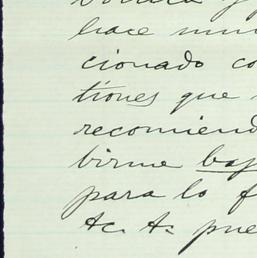 hace mu
cionado co
tiones que
recomiend
birme baj
para lo f
tc. tc. pue